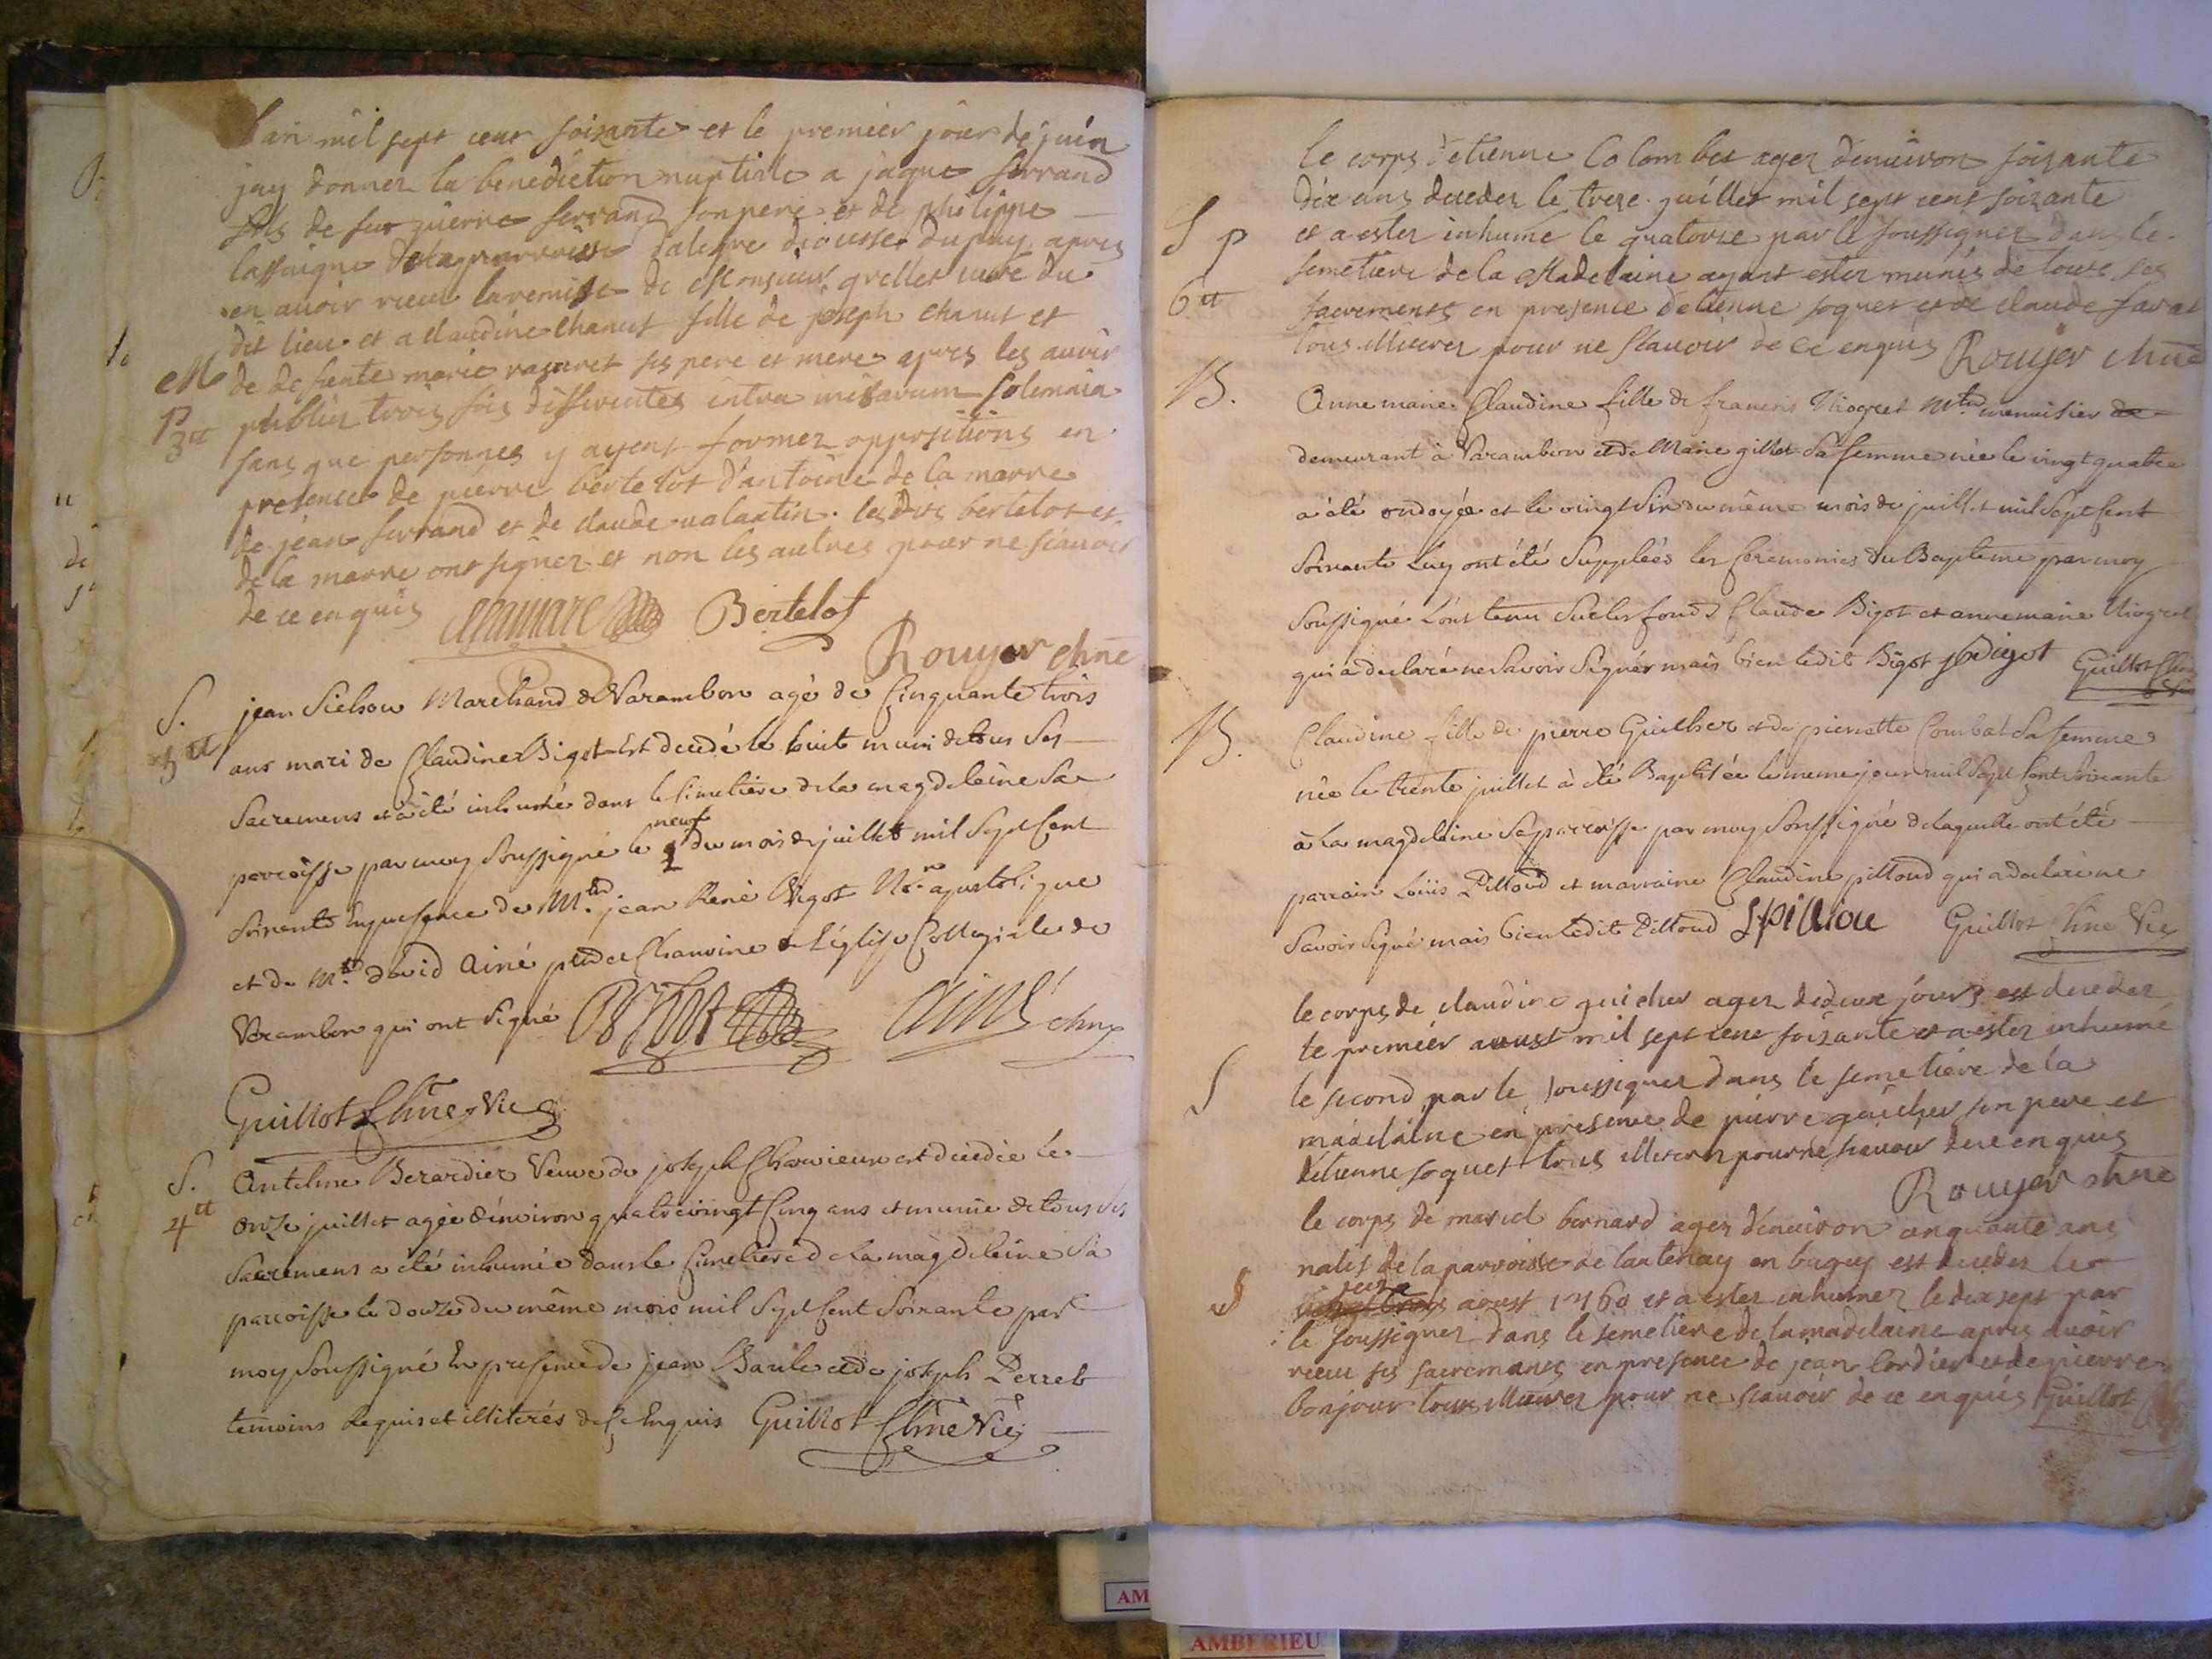 Lan mil sept cent soixante et le premier jour de juin
jay donner la benediction nuptiale a jaque ferrand
fils de feu pierre ferrand son pere et de philippe
lassaigne de la parroisse d'alegre diocesse du puy apres
en avoir recu la remise de Monsieur grellet curé du
dit lieu et a claudine chanut fille de joseph chanut et
M de defunte marie ragaret ses pere et mere apres les avoir
p publiez trois fois differentes intra missarum solemnia
3tt sans que personnes y ayent former oppositions en
presence de pierre bertelot d'antoine de la marre
de jean ferrand et de claude valantin. les dits bertelot et
de la marre ont signez et non les autres pour ne scauoir
de ce enquis Delamare Bertelot
Rouyer chne
S. jean Marchand de Varambon agé de Cinquante trois
3tt ans mari de Claudine Bigot Est decedé le huit muni de tous Ses
Sacremens et a été inhumé dans le Cimetière de la magdeleine Sa
neuf
parroisse par moy Soussigné le du mois de juillet mil Sept Cent
Soixante En presence de Mtre jean René Bigot Nre apostolique
et de Mre david Ainé pretre Chanoine de L'église Collegiale de
Varambon qui ont Signé Bigot Ainé chne
Guillot Chne Vic
S. Anteline Berardier Veuve de joseph Charvieux est decedée le
4tt onze juillet agée d'environ quatre vingt Cinq ans et munie de tous ses
Sacremens a été inhumée dans le Cimetière de la magdeleine Sa
parroisse le douze du même mois mil Sept Cent Soixante par
moy Soussigné En presence de jean Barile et de joseph Perret
temoins Requis et illiterés de Ce Enquis Guillot Chne Vic
le corps d'etienne Colombet agez denuiron soixante
dix ans decedez le treze juillet mil sept cent soixante
S p et a estez inhumé le quatorze par le soussignez dans le
semetiere de la Madelaine ayant estez munis de tous ses
6tt sacrements en presence detienne soquet et de claude favat
tous illiterez pour ne scauoir de ce enquis Rouyer chne
B. Anne marie Claudine fille de francois Niogret Mtre menuisier de
demeurant à Varambon et de Marie gillet Sa femme née le vingt quatre
a été ondoyée et le vingt Six du même mois de juillet mil Sept Cent
Soixante Luy ont été Supplées les Ceremonies du Baptême par moy
Soussigné L'ont tenu Sur les fonds Claude Bigot et anne marie Niogret
qui a declaré ne Savoir Signér mais bien ledit Bigot Bigot Guillot Chne
Vic
B. Claudine fille de pierre Guicher et de pierrette Combat Sa femme
née le trente juillet à été Baptisée le meme jour mil Sept Cent Soixante
à la magdeleine Sa parroisse par moy Soussigné de laquelle ont été
parrain Loüis Pittoud et marraine Claudine pittoud qui a declaré ne
Savoir Signé mais bien ledit Pittoud Guillot Chne Vic
le corps de claudine guicher agez de deux jours est decedez
le premier aoust mil sept cent soixante et a estez inhumé
S le second par le soussignez dans le semetiere de la
madelaine en presence de pierre guicher son pere et
detienne soquet tous illiterez pour ne scauoir de ce enquis
Rouyer chne
le corps de marcel bernard agez denuiron cinquante ans
natif de la parroisse de lantenay en bugey est decedez le
S seize aoust 1760 et a estez inhumez le dix sept par
le soussignez dans le semetiere de la madelaine apres auoir
recu ses sacremants en presence de jean Cordier et de pierre
bonjour tous illiterez pour ne scauoir de ce enquis Guillot
AM
AMBERIEU